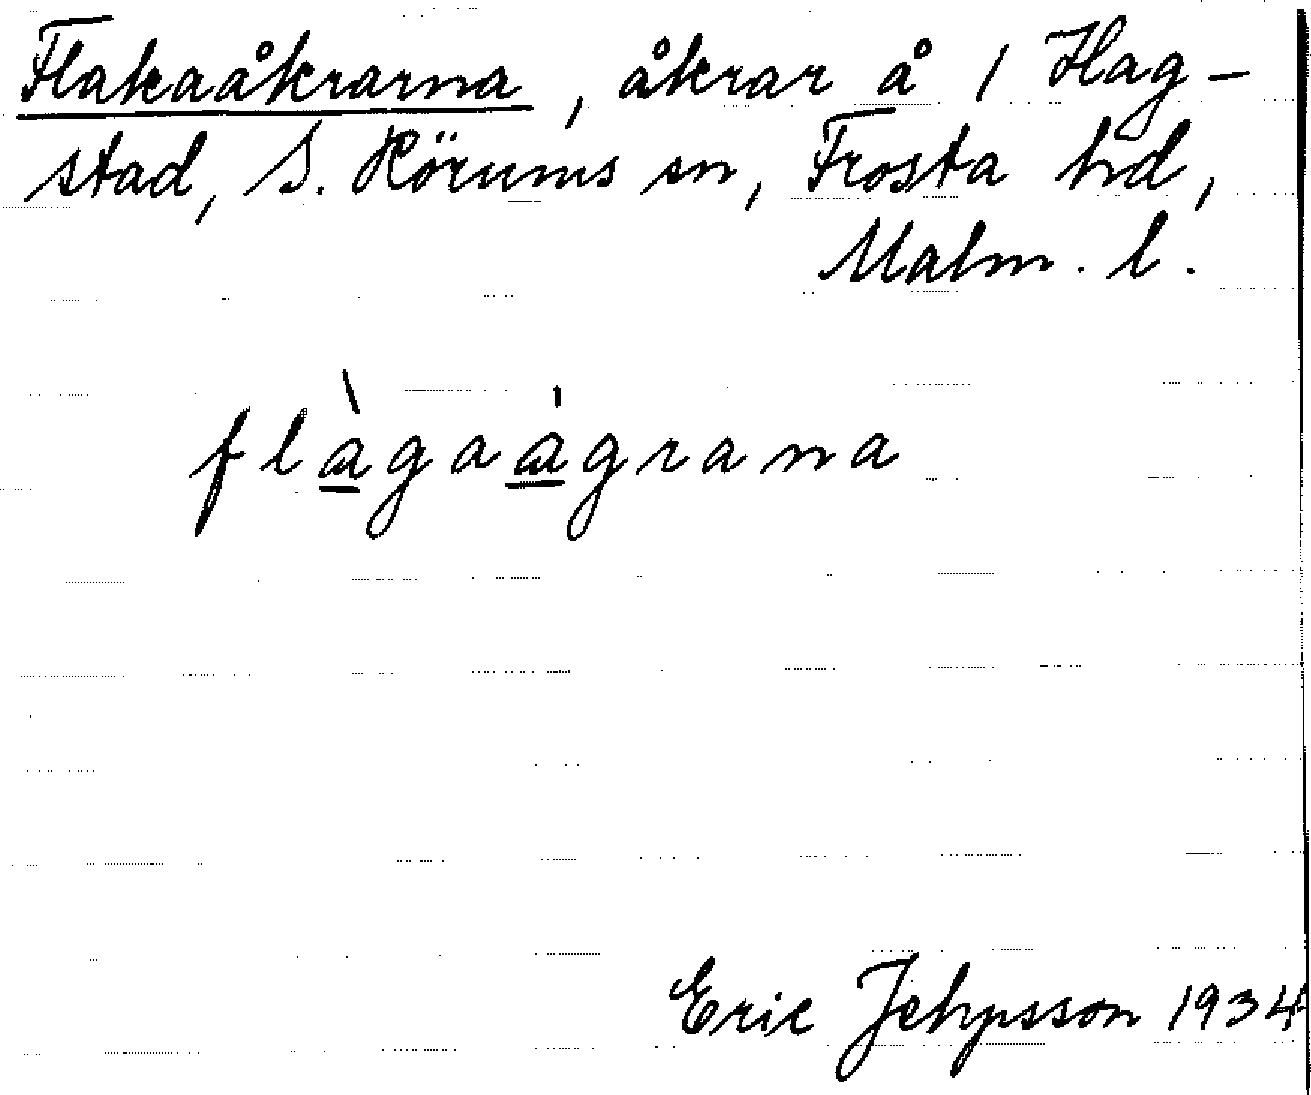 Flakaåkrarna, åkrar å 1 Hag-
stad, S. Hörums sn, Frosta hd,
Malm. l.
flàgaágrana
Eric Jehpsson 1934